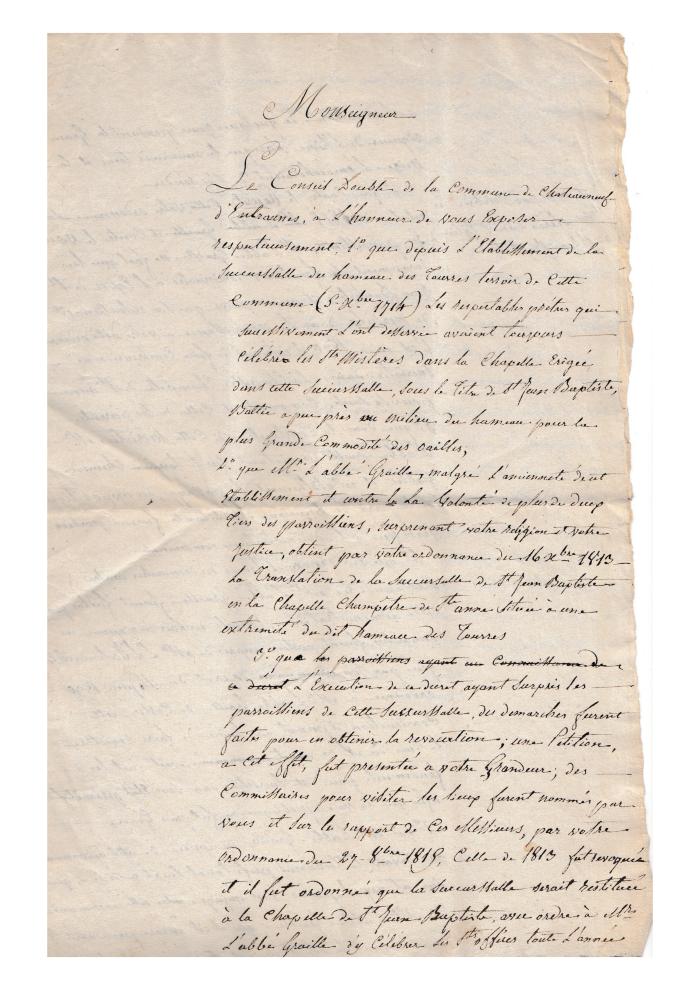 Monseigneur
Le Conseil Double de la Commune de Chateauneuf
d'Entraunes, a L'honneur de vous Exposer
respectueusement. 1.° que depuis L'Etablissement de la
Succursalle du hameau des Tourres terroir de Cette
Commune (5. Xbre 1714) Les respectables prêtres qui
successivement L'ont desservie avaient toujours
Célébré les Sts Mistères dans la Chapelle Erigée
dans cette Succursalle, sous le Titre de St Jean Baptiste,
Battie a peu près au milieu du hameau pour la
plus Grande Commodité des oailles,
2.° que Mr. L'abbé Graille, malgré L'ancienneté de cet
Etablissement et contre la La Volonté de plus de deux
Tiers des parroissiens, surprenant votre religion et votre
justice, obtint par votre ordonnance du 16 Xbre 1813
La Translation de la Succursalle de St Jean Baptiste
en la Chapelle Champêtre de Ste anne Située à une
extremité du dit hameau des Tourres
3.° que les parroissiens ayant eu Connaissance de
ce décret L'Execution de ce decret ayant Surpris les
parroissiens de Cette Succursalle, des demarches furent
faites pour en obtenir la revocation; une Pétition,
a Cet effet, fut presentée a votre Grandeur; des
Commissaires pour visiter les lieux furent nommés par
vous et Sur le rapport de Ces Messieurs, par votre
ordonnance du 27 8bre 1819. Celle de 1813 fut revoquée
et il fut ordonné que la Succursalle serait restituée
à la Chapelle de St Jean Baptiste, avec ordre à Mr.
L'abbé Graille d'y Célébrer les Sts offices toute L'année